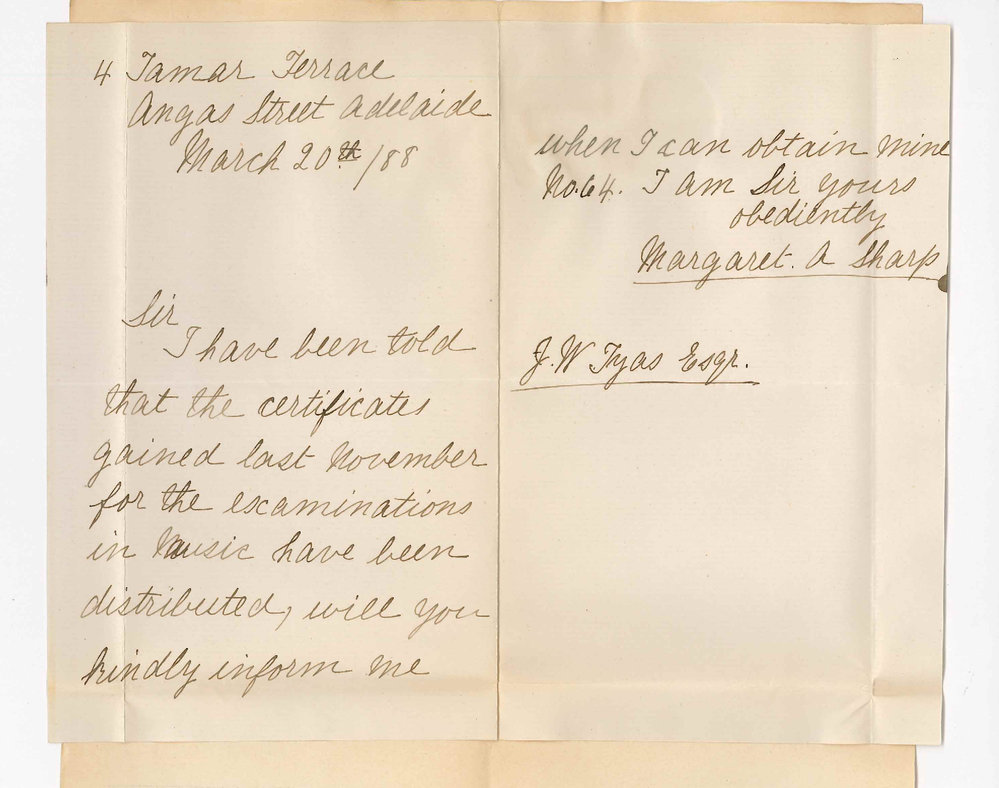 4 Tamar Terrace
Angas Street Adelaide
March 20th /88
Sir
I have been told
that the certificates
gained last November
for the examinations
in Music have been
distributed, will you
kindly inform me
when I can obtain mine
No.64. I am Sir yours
obediently
Margaret. A Sharp
J.W Tyas Esqr.